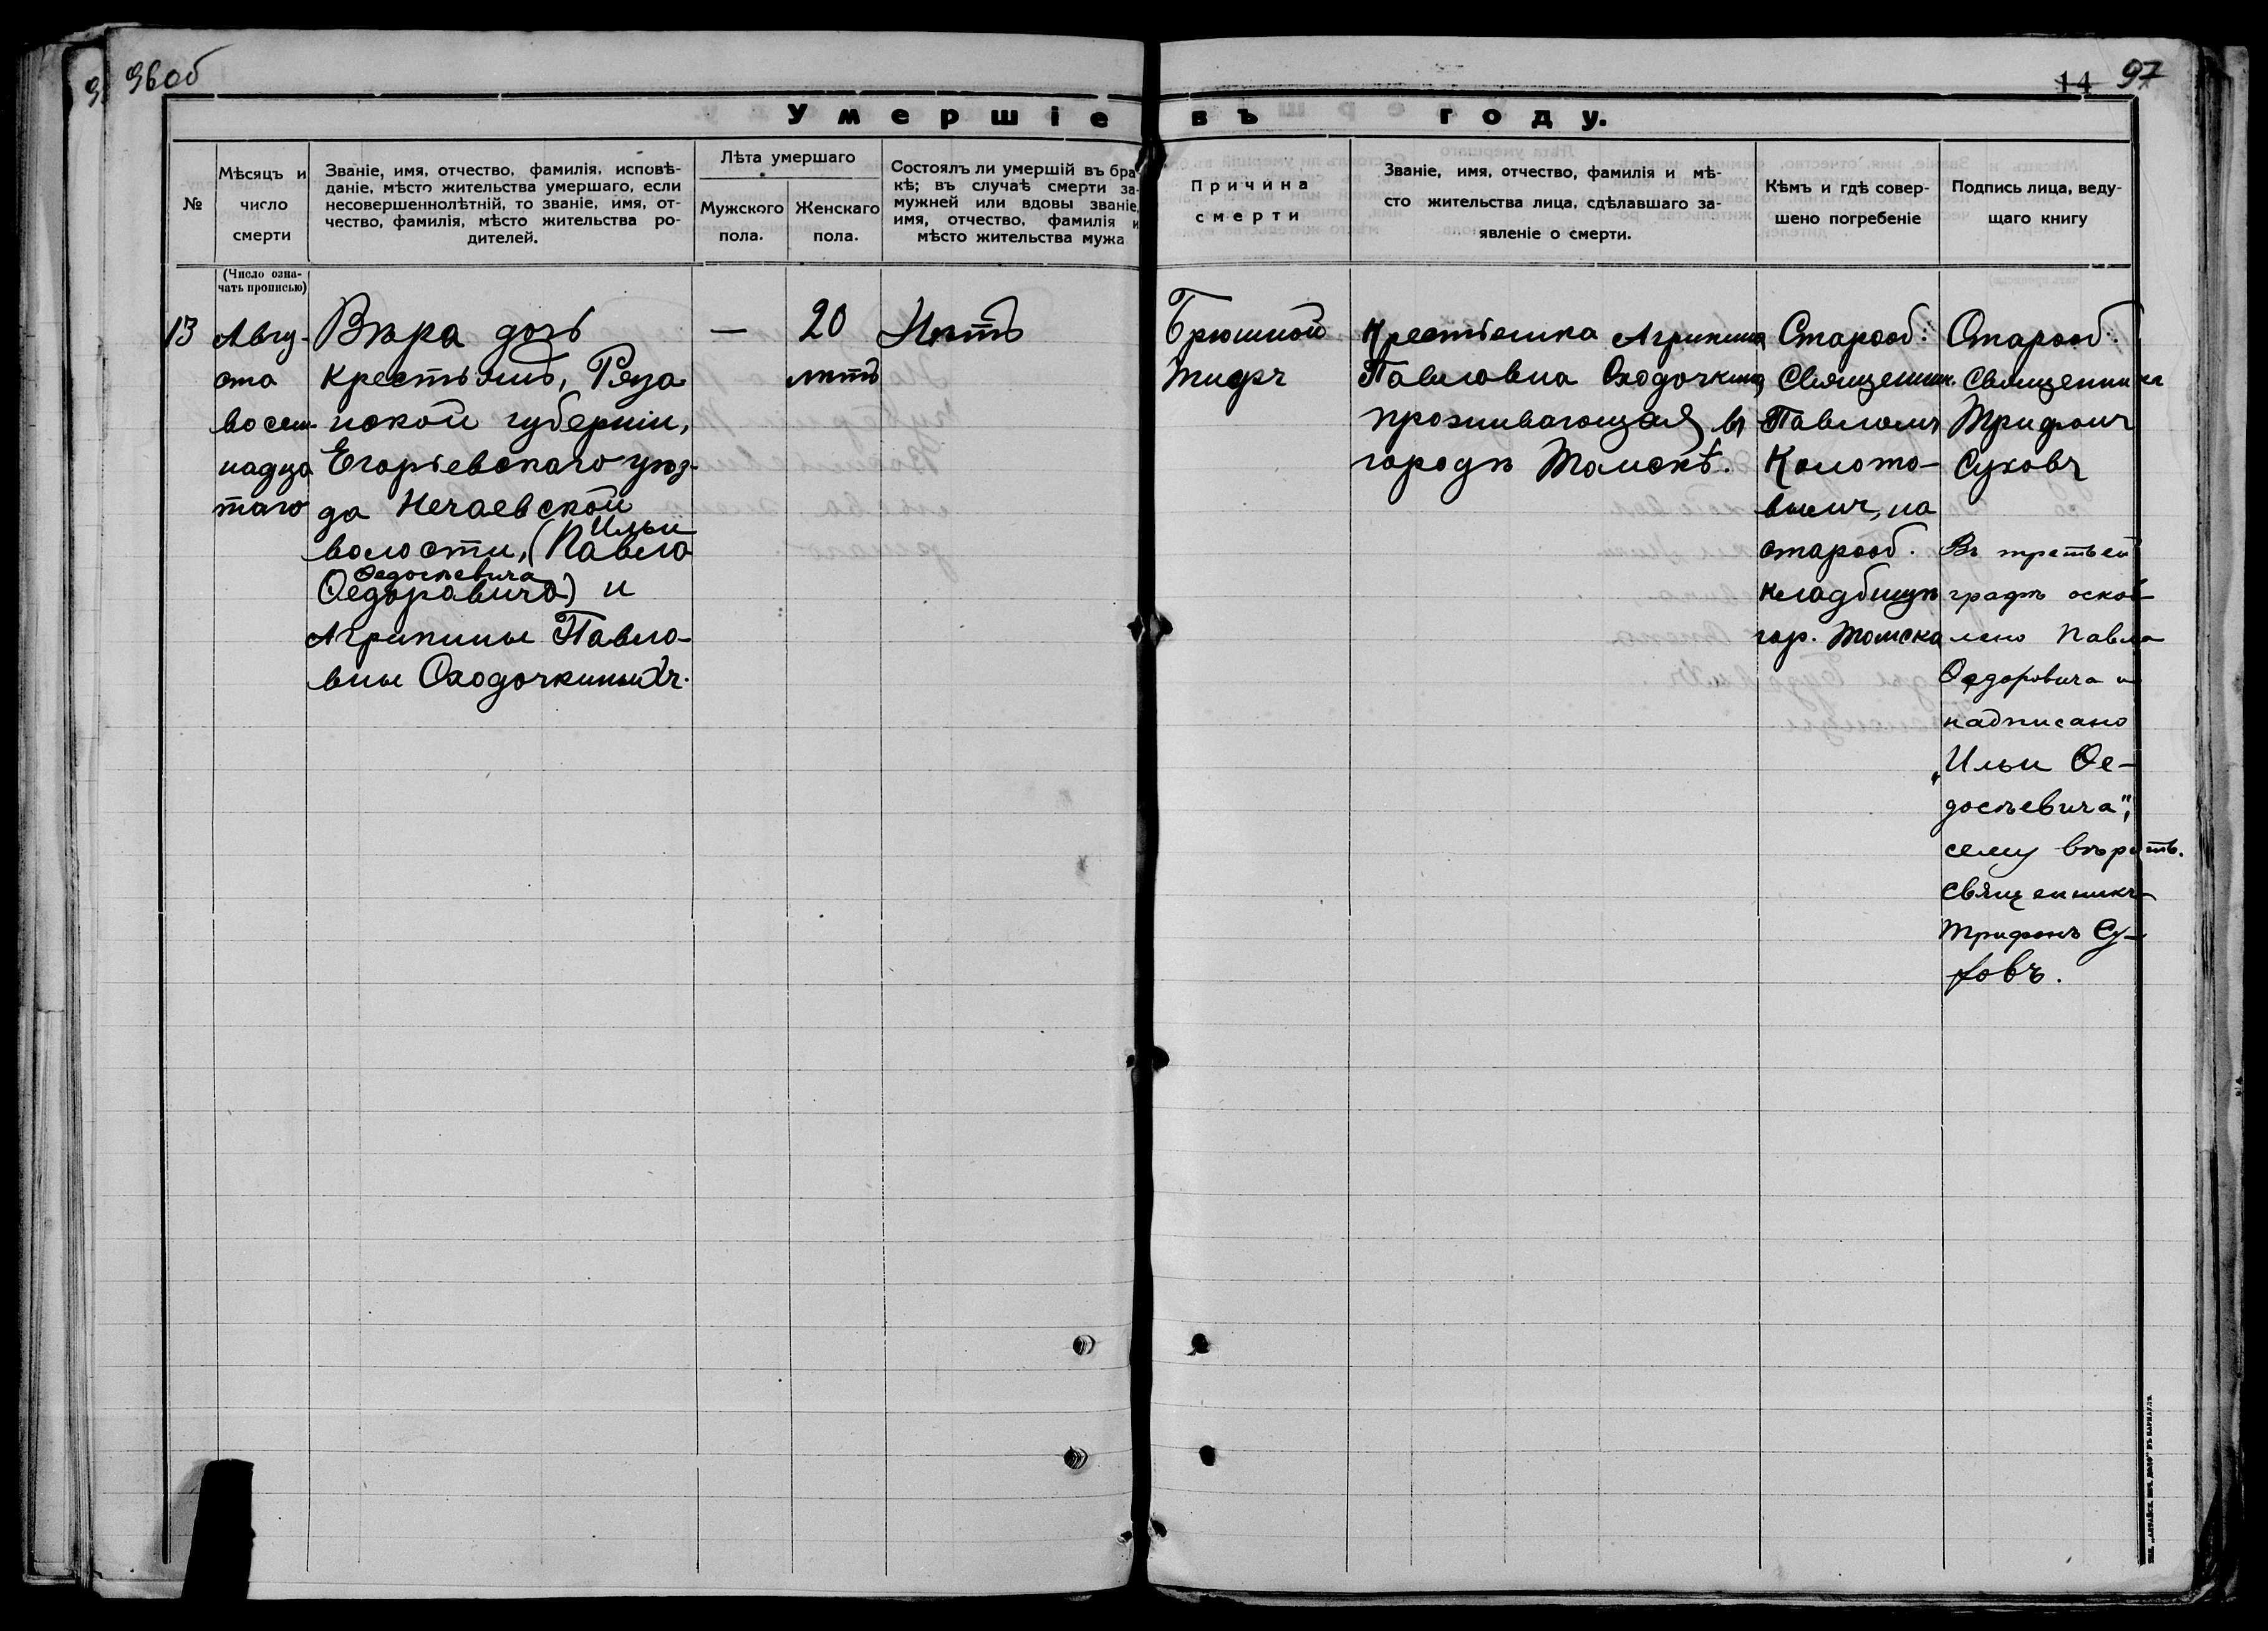 96об
14 97
Умершіе въ году.
№
Мѣсяцъ и
число
смерти
Званіе, имя, отчество, фамилія, исповѣ-
даніе, мѣсто жительства умершаго, если
несовершеннолѣтній, то званіе, имя, от-
чество, фамилія, мѣсто жительства ро-
дителей.
Лѣта умершаго
Мужского
пола.
Женскаго
пола.
Состоялъ ли умершій въ бра
кѣ; въ случаѣ смерти за-
мужней или вдовы званіе,
имя, отчество, фамилія и
мѣсто жительства мужа
Причина
смерти
Званіе, имя, отчество, фамилія и мѣ-
сто жительства лица, сдѣлавшаго за-
явленіе о смерти.
Кѣмъ и гдѣ совер-
шено погребеніе
Подпись лица, веду-
щаго книгу
(Число озна-
чать прописью)
13
Авгу-
ста
восем-
надца
таго
Вѣра дочь
крестьянъ, Ряза
нской губерніи,
Егорьевскаго уѣз-
да Нечаевской
Ильи
волости, (Павла
Ѳедосѣевича
Ѳедоравича) и
Агрипины Павло-
вны Оходочкиныхъ.
—
20
лѣтъ
Нѣтъ
Брюшной
тифъ
Крестьянка Агрипина
Павловна Оходочкина,
проживающая въ
городѣ Томскѣ.
Старооб.
Священник.
Павломъ
Колото-
вымъ, на
старооб.
кладбищѣ
гор. Томска
Старооб.
Священника
Трифонъ
Суховъ
Въ третьей
графѣ оскоб-
лено Павла
Ѳедоровича и
надписано
„Ильи Ѳе-
досѣевича",
сему вѣрить.
Священникъ
Трифонъ Су-
ховъ.
ТИП. „АЛТАЙСК. ПЕЧ. ДѢЛО" ВЪ БАРНАУЛѢ